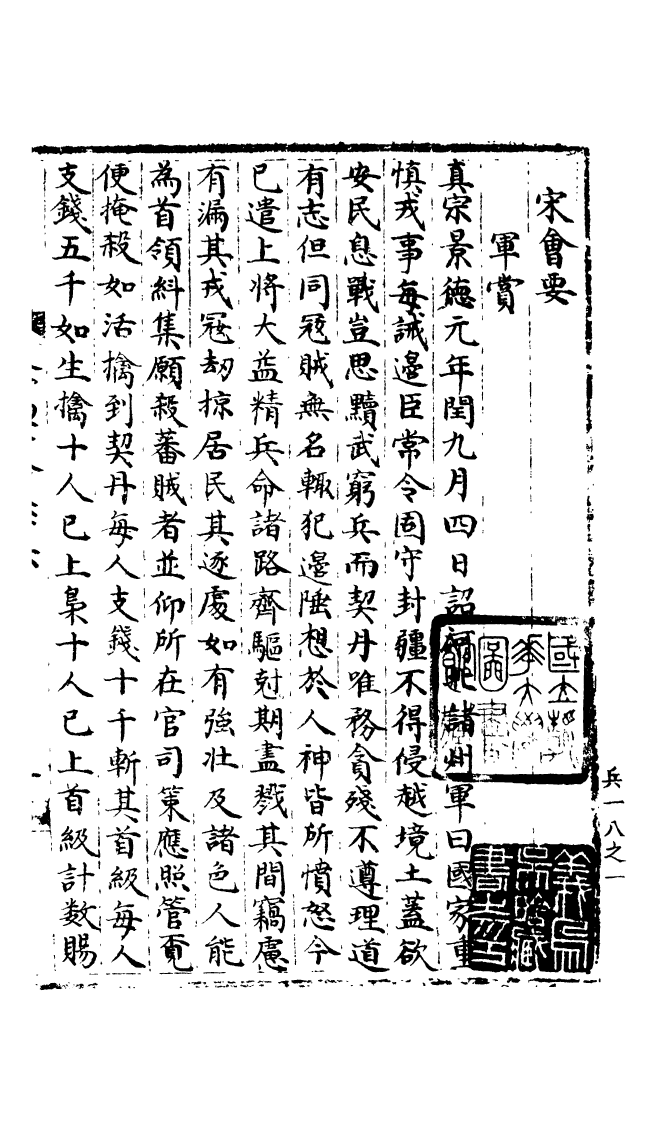 宋會要
軍賞
真宗景德元年閏九月四日詔河北諸州軍曰國家重
慎戎事每誡邊臣常令固守封疆不得侵越境土蓋欲
安民息戰豈思黷武窮兵而契丹唯務貪殘不遵理道
有志但同冦賊無名輙犯邊陲想於人神皆所憤怒今
已遣上將大益精兵命諸路齊驅尅期盡戮其間竊慮
有漏其戎冦劫掠居民其逐處如有強壯及諸色人能
為首領糾集願殺蕃賊者並仰所在官司策應照管覔
便掩殺如活擒到契丹每人支錢十千斬其首級每人
支錢五千如生擒十人已上梟十人已上首級計數賜
兵一八之一